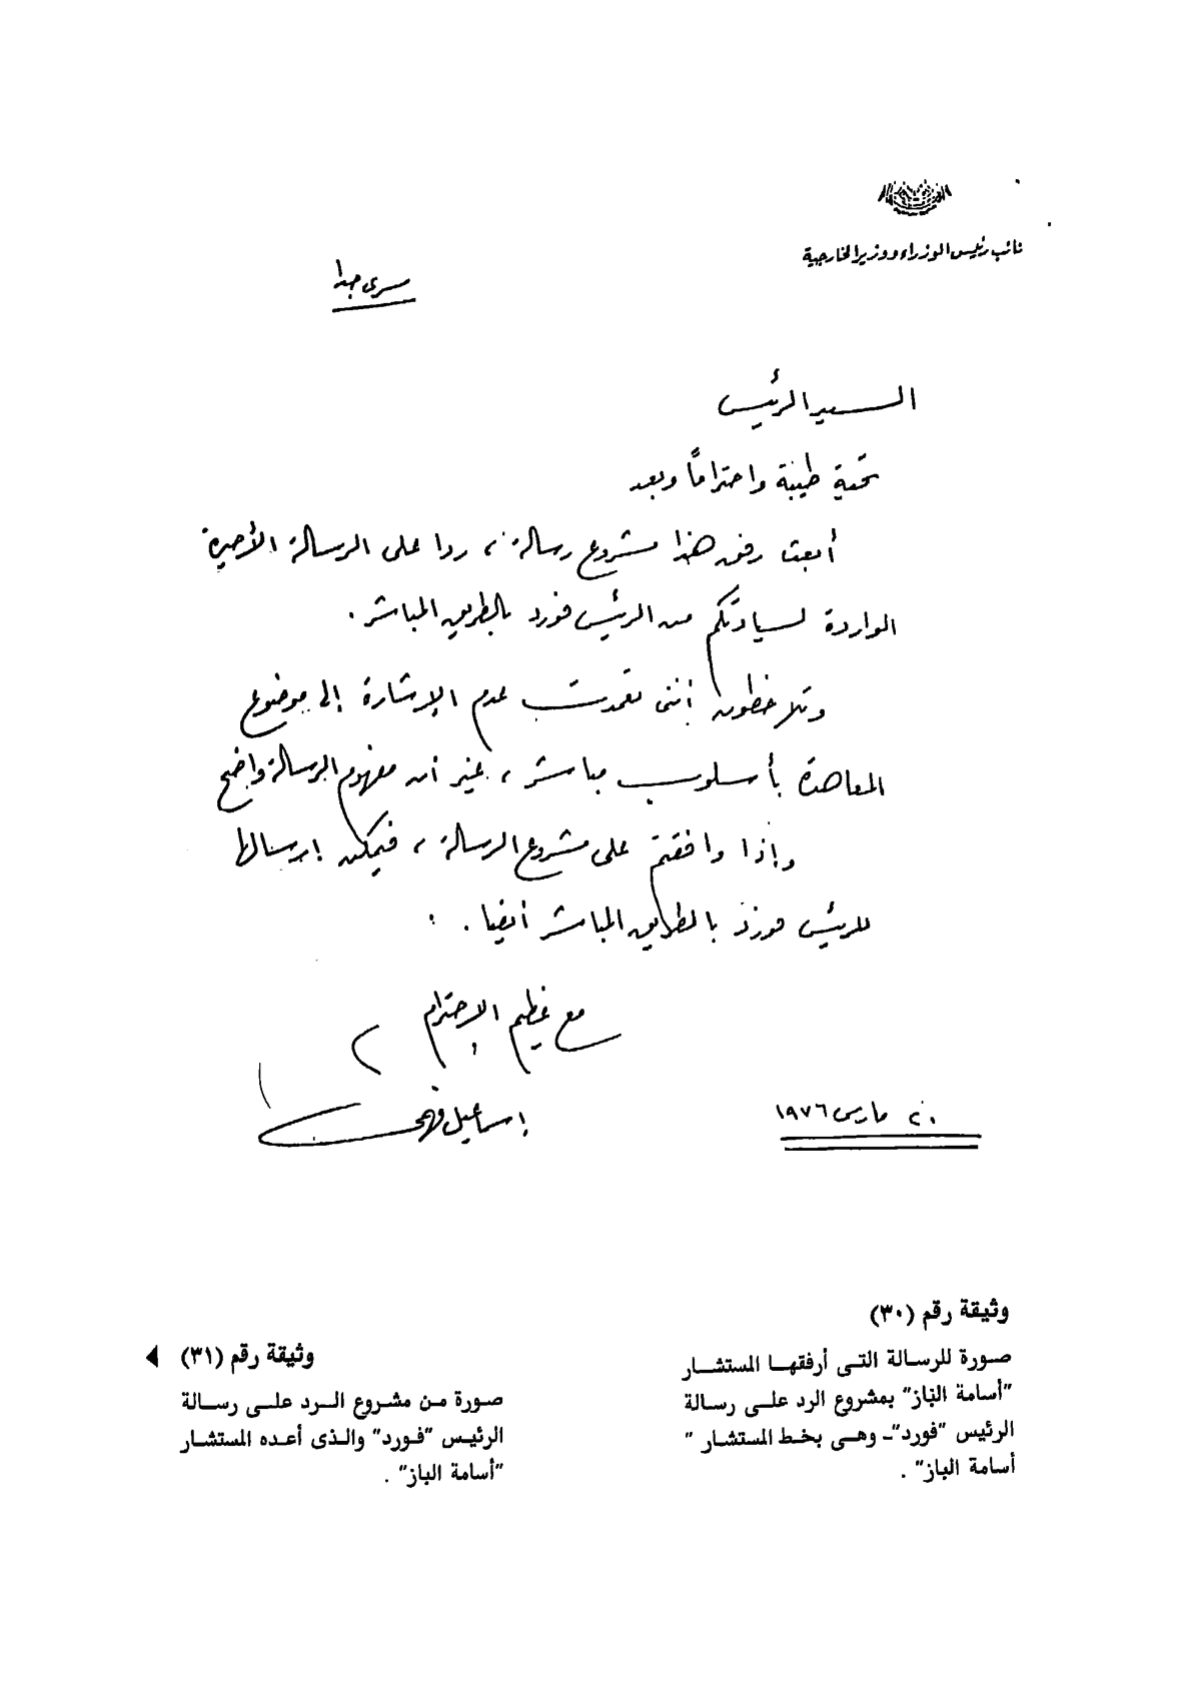 نائب رئيس الوزراء ووزير الخارجية
سرى جدا
السيد الرئيس
تحية طيبة واحتراماً وبعد
أبعث رفق هذا مشروع رسالة، ردا على الرسالة الأخيرة
الواردة لسيادتكم من الرئيس فورد بالطريق المباشر.
وتلاحظون أننى تعمدت عدم الإشارة إلى موضوع
المعاهدة بأسلوب مباشر، غير أن مفهوم الرسالة واضح
وإذا وافقتم على مشروع الرسالة، فيمكن إرسالها
للرئيس فورد بالطريق المباشر أيضا.
مع عظيم الإحترام
إسماعيل فهمى
٢٠ مارس ١٩٧٦
وثيقة رقم (٣٠)
صورة للرسالة التى أرفقها المستشار
"أسامة الباز" بمشروع الرد على رسالة
الرئيس "فورد"ـ وهى بخط المستشار "
أسامة الباز" .
وثيقة رقم (٣١)
صورة من مشروع الرد على رسالة
الرئيس "فورد" والذى أعده المستشار
"أسامة الباز" .